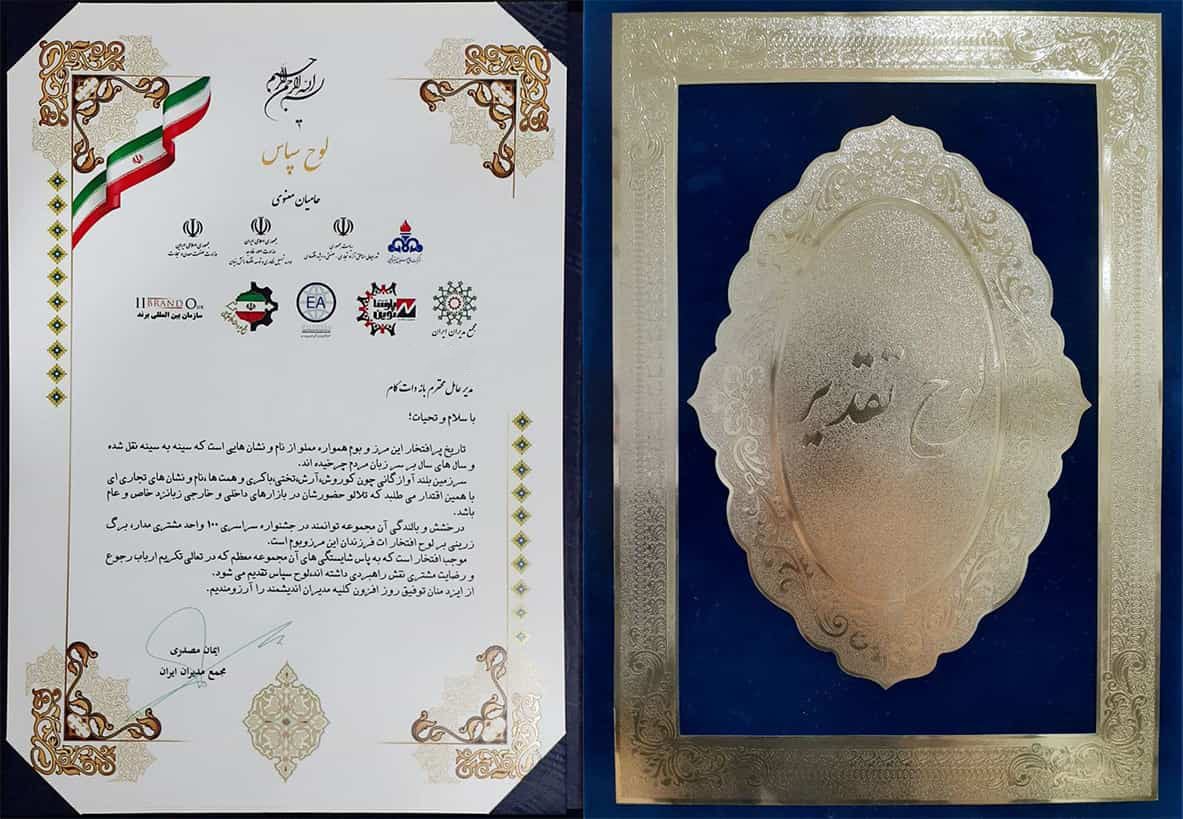 بسم الله الرحمن الرحیم
لوح سپاس
حامیان معنوی
جمهوری اسلامی ایران
وزارت صنعت، معدن و تجارت
جمهوری اسلامی ایران
ریاست جمهوری
II BRAND O.ORG
سازمان بین المللی برند
EA
پارسا
نوین
مجمع مدیران ایران
مدیر عامل محترم بانه دات کام
با سلام و تحیات؛
تاریخ پرافتخار این مرز و بوم همواره مملو از نام و نشان هایی است که سینه به سینه نقل شده
و سال های سال بر سر زبان مردم چرخیده اند.
سرزمین بلند آوازگانی چون کوروش،آرش،تختی،باکری و همت ها،نام و نشان های تجاری ای
با همین اقتدار می طلبد که تلالو حضورشان در بازارهای داخلی و خارجی زبانزد خاص و عام
باشد.
درخشش و بالندگی آن مجموعه توانمند در جشنواره سراسری ۱۰۰ واحد مشتری مدار، برگ
زرینی بر لوح افتخار ات فرزندان این مرزوبوم است.
موجب افتخار است که به پاس شایستگی های آن مجموعه معظم که در تعالی تکریم ارباب رجوع
و رضایت مشتری نقش راهبردی داشته اند،لوح سپاس تقدیم می شود.
از ایزد منان توفیق روز افزون کلیه مدیران اندیشمند را آرزومندیم.
ایمان مصدری
مجمع مدیران ایران
لوح تقدیر